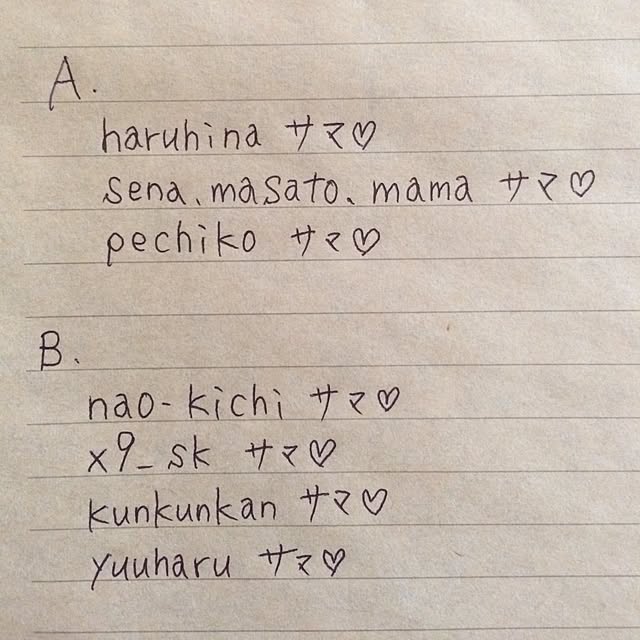 A.
haruhina サマ♡
sena、masato、mama サマ♡
pechiko サマ♡
B.
nao-kichi サマ♡
x9_sk サマ♡
kunkunkan サマ♡
yuuharu サマ♡